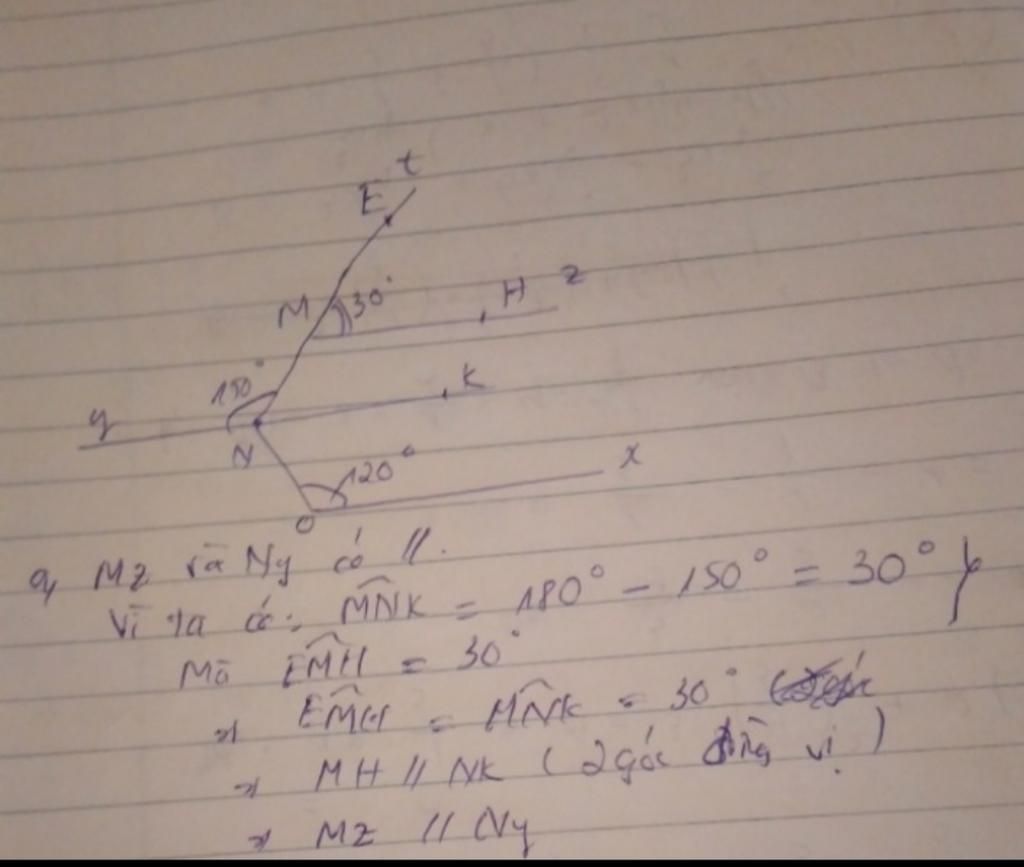 t
E
M 30° H z
150° K
y
N
120° x
O
a, Mz và Ny có //.
Vì ta có: M̂NK = 180° - 150° = 30°
Mà ÊMH = 30°
=> ÊMH = M̂NK = 30°
=> MH // NK (2 góc đồng vị)
=> Mz // Ny